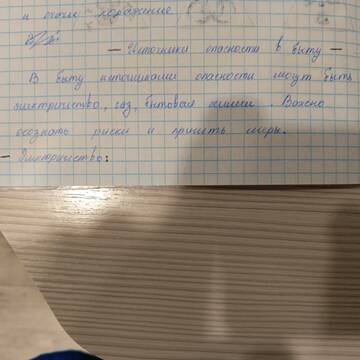 и очаги поражение
— Источники опасности в быту —
В быту источниками опасности могут быть
электричество, газ, бытовая химия. Важно
осознать риски и принять меры.
— Электричество: